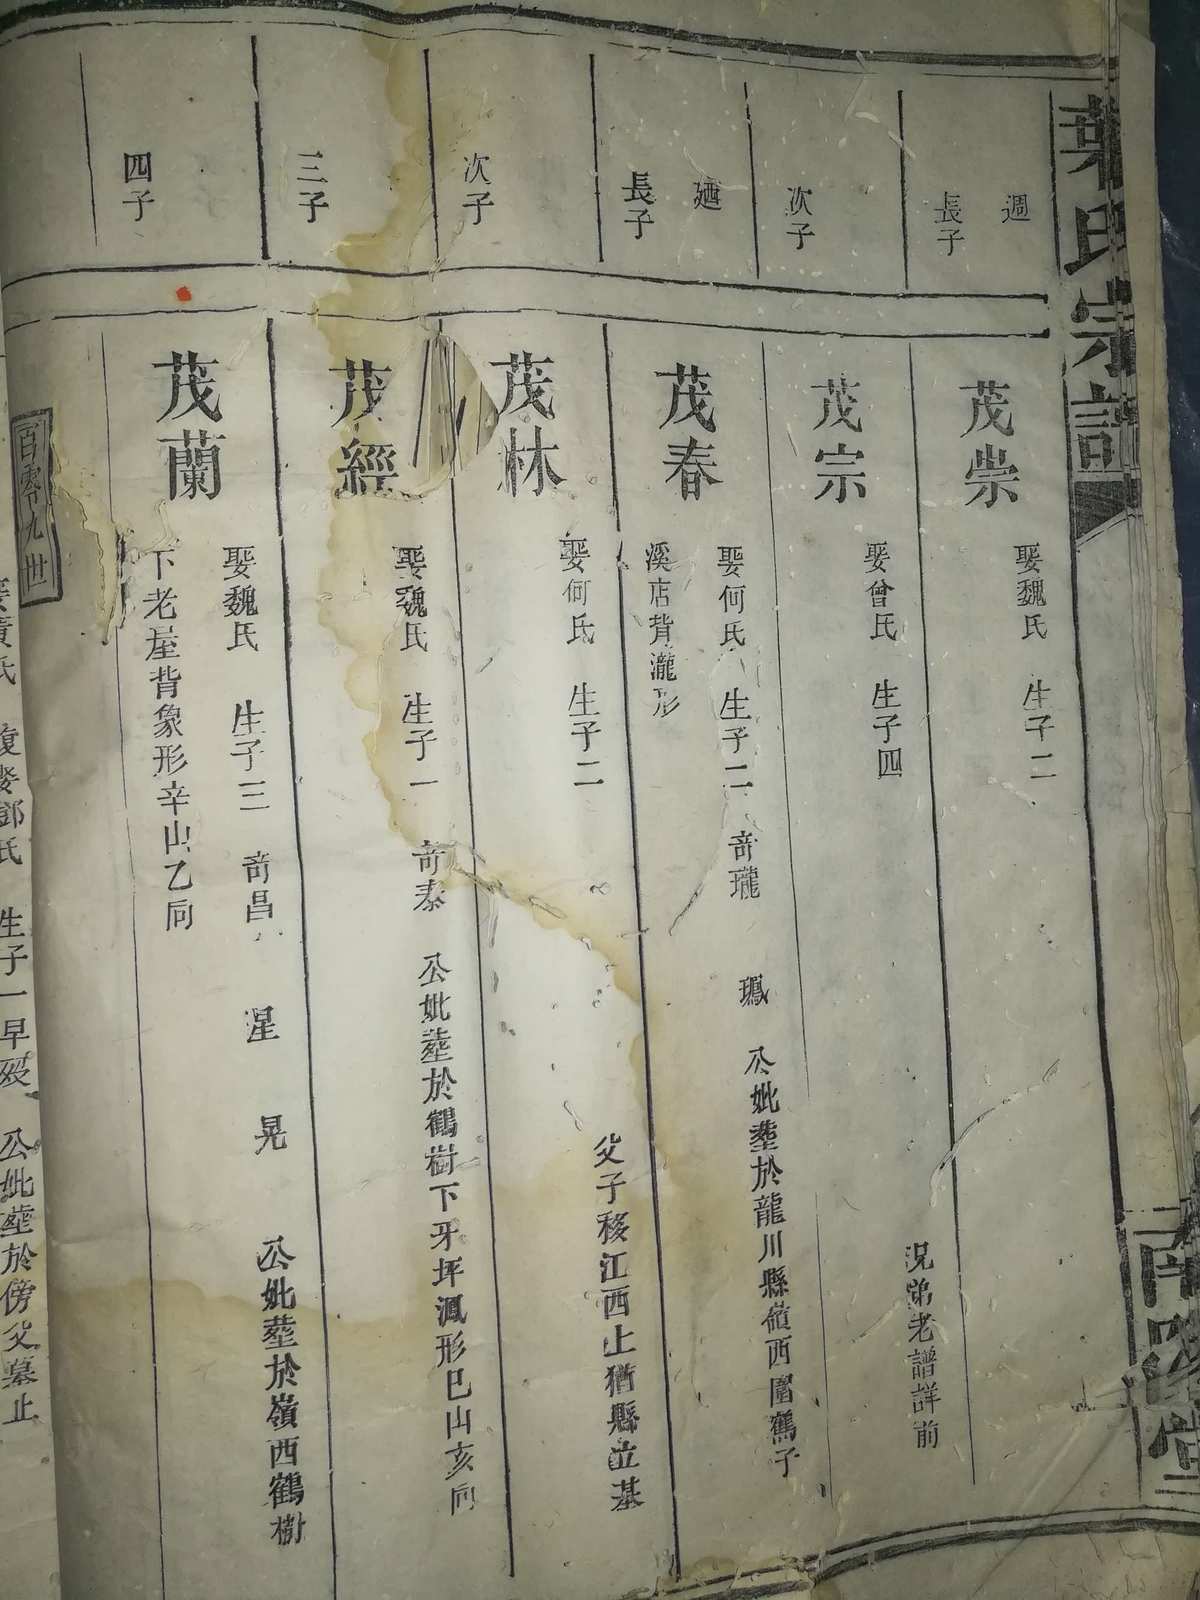 葉氏宗譜
南陽堂
週
長子
茂崇
娶魏氏 生子二
次子
茂宗
娶曾氏 生子四
況弟老譜詳前
廼
長子
茂春
娶何氏 生子二 奇瓏 鳳 公妣塟於龍川縣嶺西圍鶴子
溪店背瀧形
次子
茂林
娶何氏 生子二
父子移江西上猶縣立基
三子
茂經
娶魏氏 生子一 奇泰 公妣塟於鶴樹下牙坪鳳形巳山亥向
四子
茂蘭
娶魏氏 生子三 奇昌 星 晃 公妣塟於嶺西鶴樹
下老屋背象形辛山乙向
百零九世
娶黃氏 復娶鄧氏 生子一早歿 公妣塟於傍父墓止